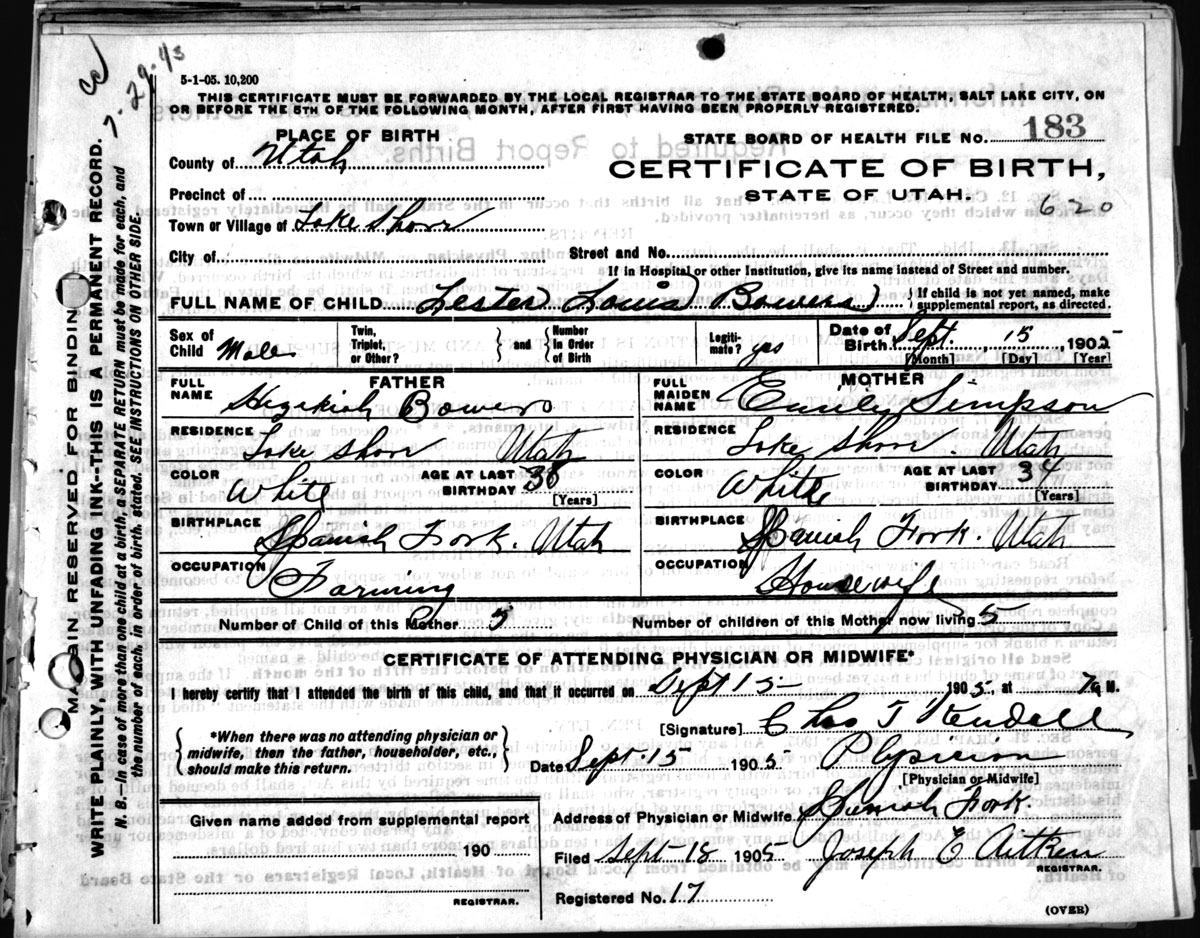 7-29-43
5-1-05. 10,200
THIS CERTIFICATE MUST BE FORWARDED BY THE LOCAL REGISTRAR TO THE STATE BOARD OF HEALTH, SALT LAKE CITY, ON
OR BEFORE THE 5TH OF THE FOLLOWING MONTH, AFTER FIRST HAVING BEEN PROPERLY REGISTERED.
PLACE OF BIRTH
STATE BOARD OF HEALTH FILE NO. 183
County of Utah
CERTIFICATE OF BIRTH,
STATE OF UTAH.
Precinct of
620
Town or Village of Lake Shore
City of Street and No.
If in Hospital or other Institution, give its name instead of Street and number.
FULL NAME OF CHILD Lester Louis (Bowers) { If child is not yet named, make supplemental report, as directed.
Sex of Child Male Twin, Triplet, or Other? } and { Number In Order of Birth Legitimate? yes Date of Birth Sept. 15, 1905
[Month] [Day] [Year]
FATHER
FULL NAME Hezekiah Bowers
RESIDENCE Lake Shore Utah
COLOR White AGE AT LAST BIRTHDAY 38 [Years]
BIRTHPLACE Spanish Fork. Utah
OCCUPATION Farming
MOTHER
FULL MAIDEN NAME Emily Simpson
RESIDENCE Lake Shore. Utah
COLOR White AGE AT LAST BIRTHDAY 34 [Years]
BIRTHPLACE Spanish Fork. Utah
OCCUPATION Housewife
Number of Child of this Mother 5 Number of children of this Mother now living 5
CERTIFICATE OF ATTENDING PHYSICIAN OR MIDWIFE*
I hereby certify that I attended the birth of this child, and that it occurred on Sept 15 1905 at 7 a M.
[Signature] Chas T Kendall
{ *When there was no attending physician or midwife, then the father, householder, etc., should make this return. }
Date Sept. 15 1905 Physician
[Physician or Midwife]
Given name added from supplemental report
190
REGISTRAR.
Address of Physician or Midwife Spanish Fork.
Filed Sept 18 1905 Joseph E Aitken
REGISTRAR.
Registered No. 17
(OVER)
MARGIN RESERVED FOR BINDING
WRITE PLAINLY, WITH UNFADING INK--THIS IS A PERMANENT RECORD.
N. B.--In case of more than one child at a birth, a SEPARATE RETURN must be made for each, and
the number of each, in order of birth, stated. SEE INSTRUCTIONS ON OTHER SIDE.